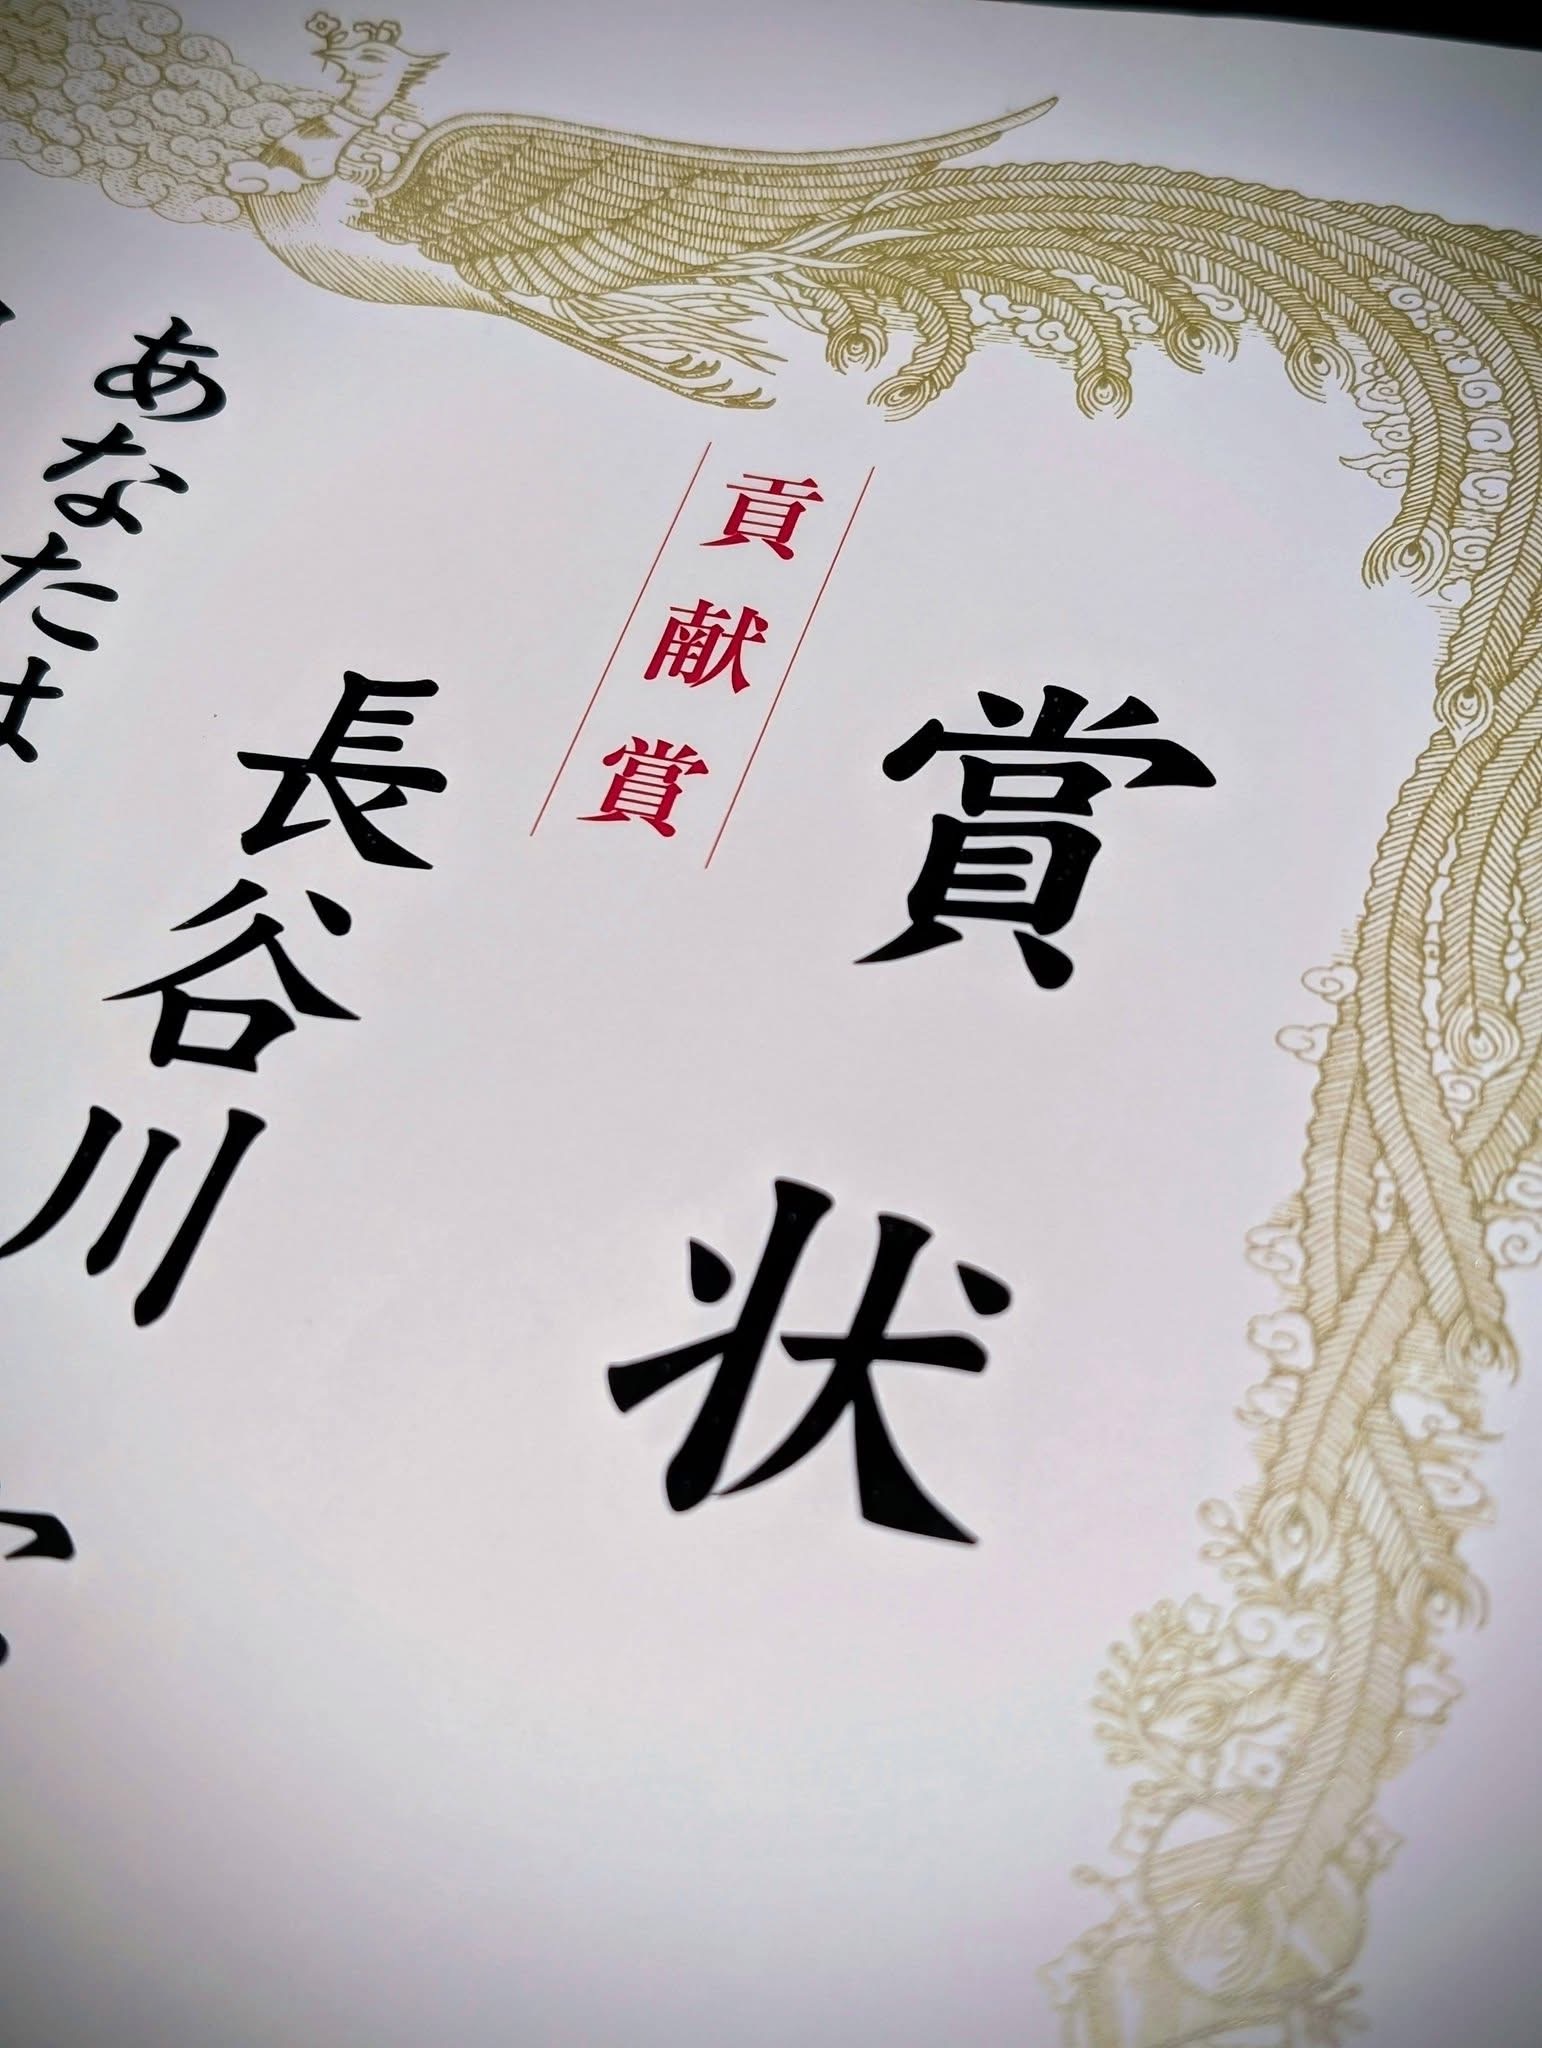 賞状
貢献賞
長谷川
あなたは